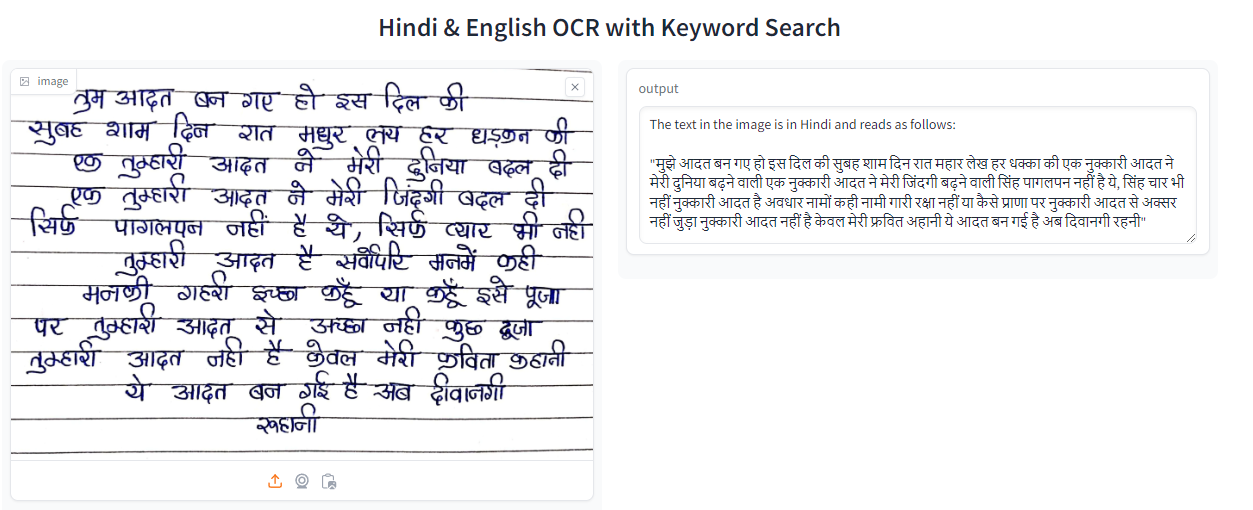 Hindi & English OCR with Keyword Search
image
तुम आदत बन गए हो इस दिल की
सुबह शाम दिन रात मधुर लय हर धड़कन की
एक तुम्हारी आदत ने मेरी दुनिया बदल दी
एक तुम्हारी आदत ने मेरी जिंदगी बदल दी
सिर्फ पागलपन नहीं है ये, सिर्फ प्यार भी नही
तुम्हारी आदत है सर्वोपरि मनमें कही
मनकी गहरी इच्छा कहूँ या कहूँ इसे पूजा
पर तुम्हारी आदत से अच्छा नही कुछ दूजा
तुम्हारी आदत नही है केवल मेरी कविता कहानी
ये आदत बन गई है अब दीवानगी
रूहानी
output
The text in the image is in Hindi and reads as follows:
"मुझे आदत बन गए हो इस दिल की सुबह शाम दिन रात महार लेख हर धक्का की एक नुक्कारी आदत ने
मेरी दुनिया बढ़ने वाली एक नुक्कारी आदत ने मेरी जिंदगी बढ़ने वाली सिंह पागलपन नहीं है ये, सिंह चार भी
नहीं नुक्कारी आदत है अवधार नामों कही नामी गारी रक्षा नहीं या कैसे प्राणा पर नुक्कारी आदत से अक्सर
नहीं जुड़ा नुक्कारी आदत नहीं है केवल मेरी फ्रवित अहानी ये आदत बन गई है अब दिवानगी रहनी"